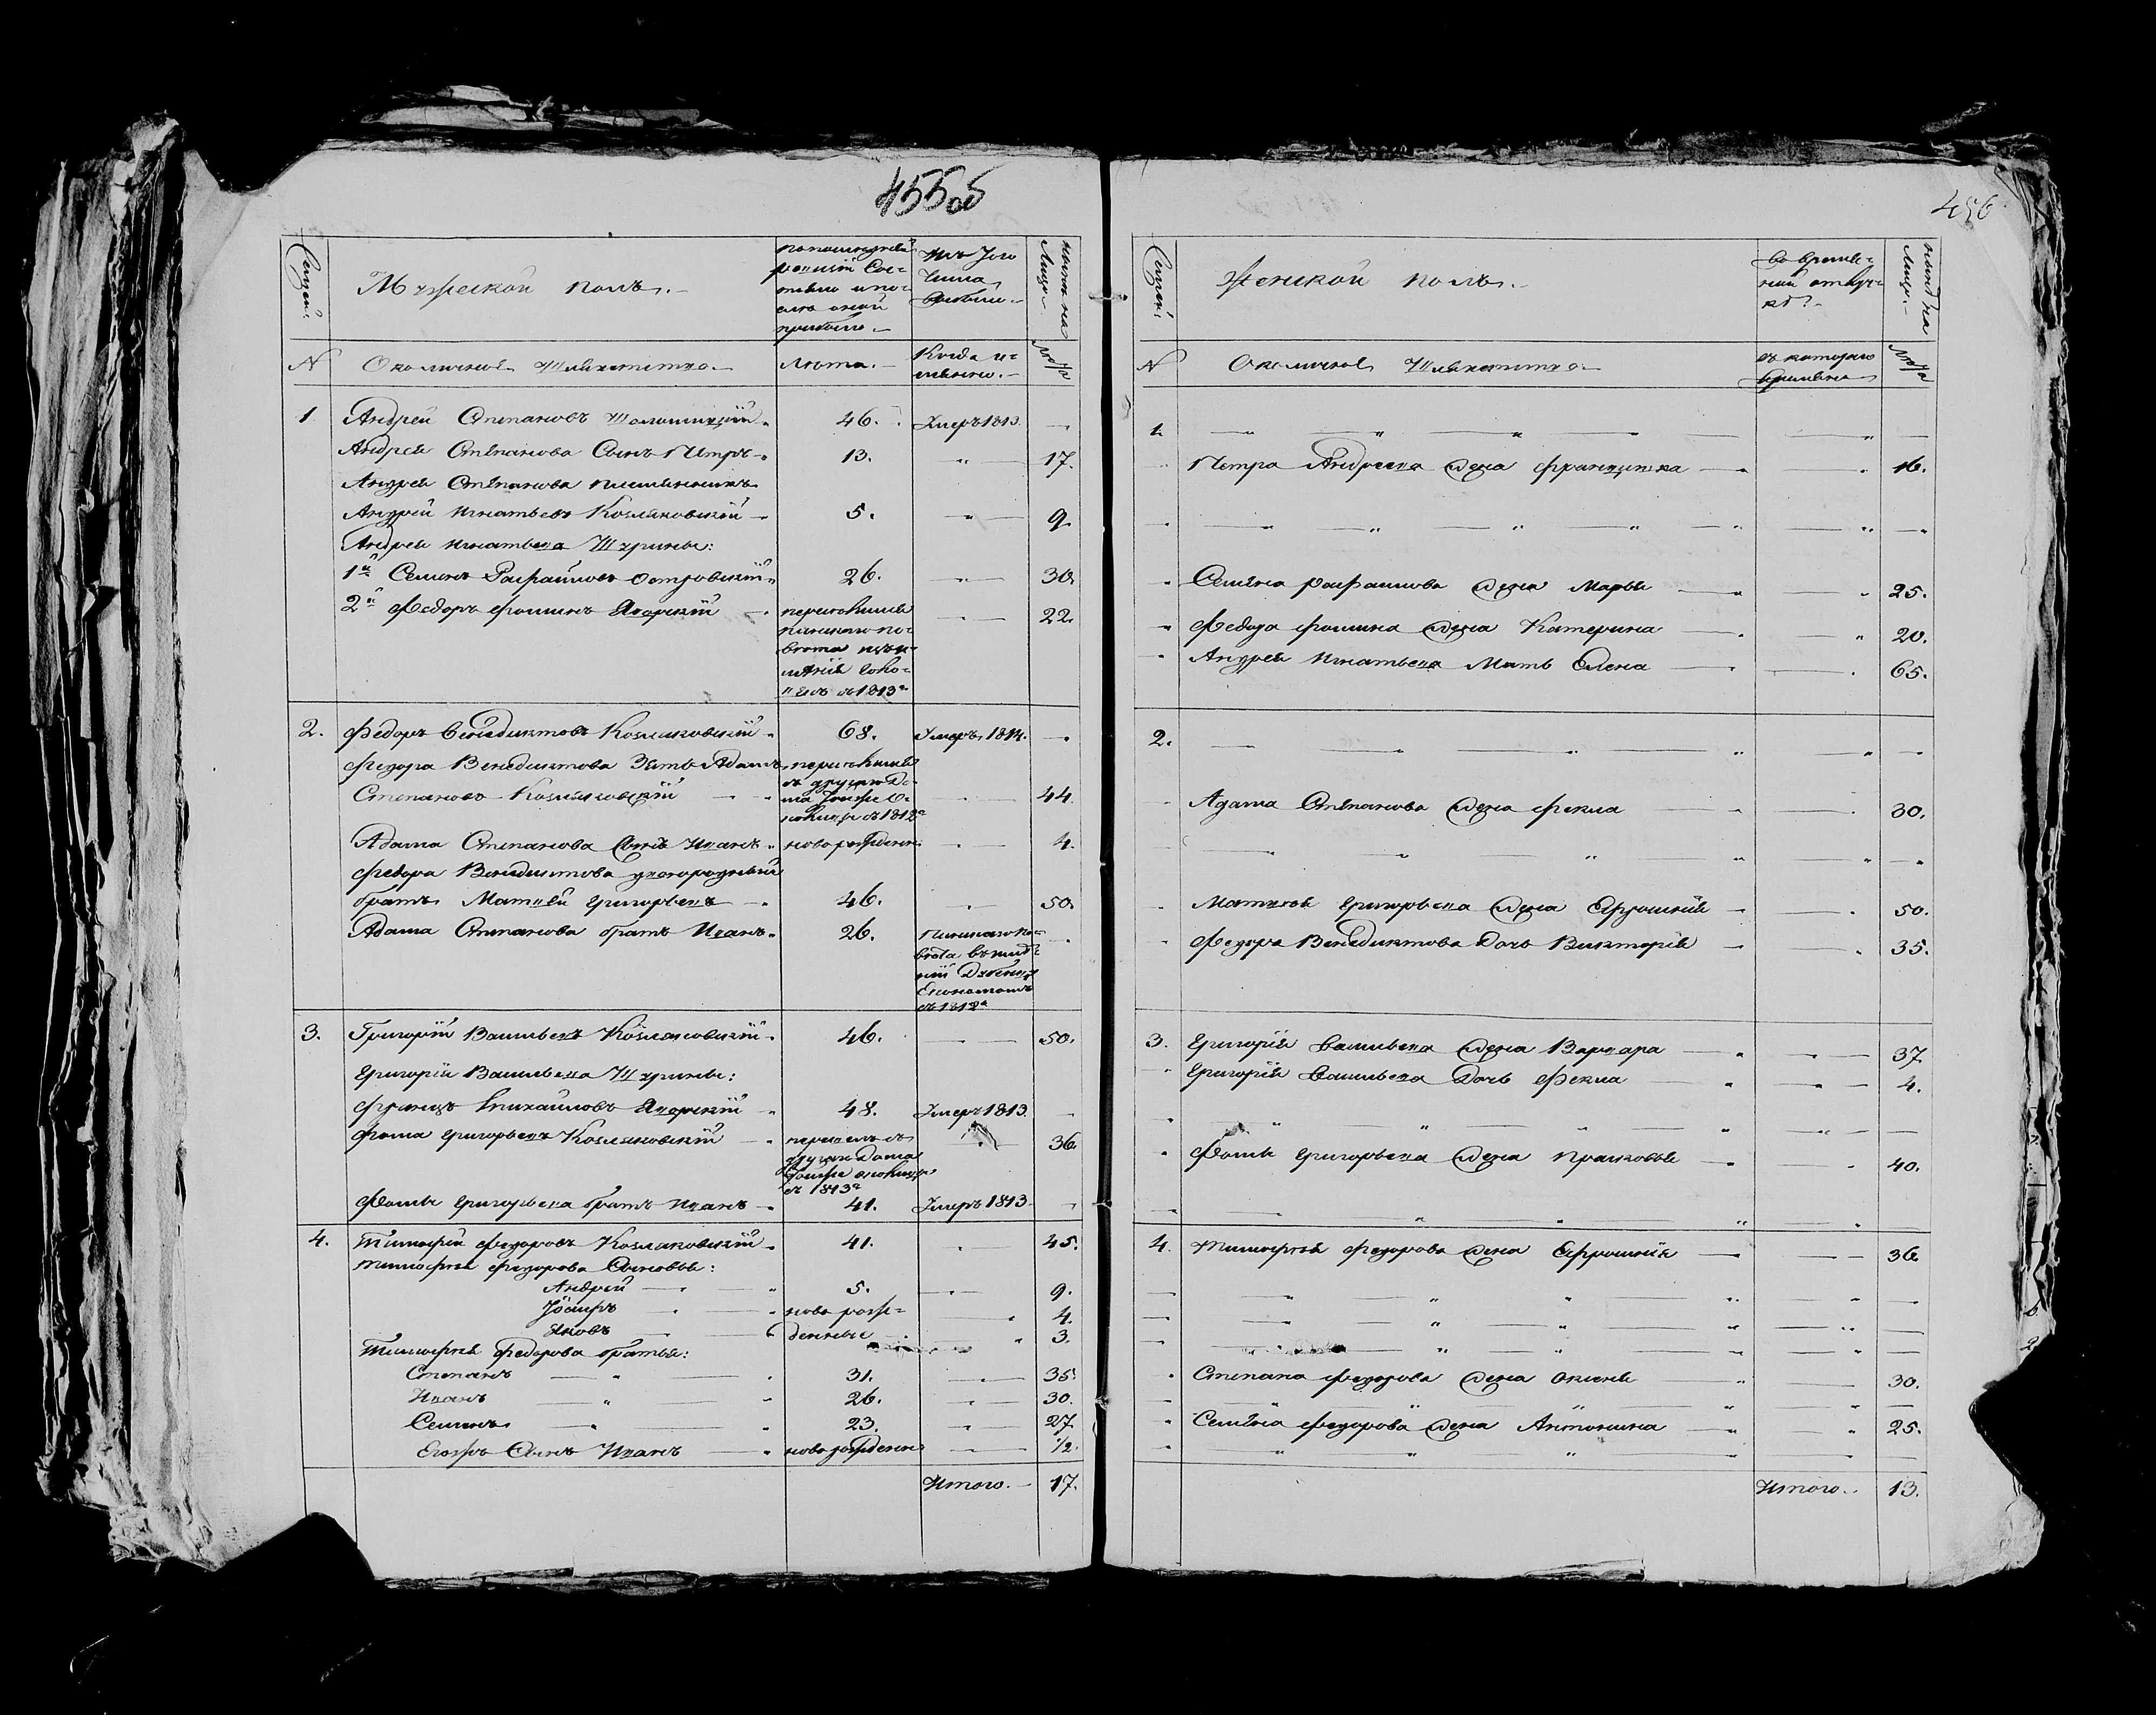 455об
Семей:
Мужеской полъ.
по последней
ревизіи сос-
тояло и по-
сле оной
прибыло.
Изъ того
числа
выбыло.
ныне на
лицо.
N
Околичной Шляхетство.
Лета.
Когда и-
менно.
Лета
1.
Андрей Степановъ
46.
Умеръ 1813.
Андрея Степанова Сынъ Петръ
13.
17.
Андрея Степанова племянникъ
Андрей Игнатьевъ Козляковскій
5.
9.
Андрея Игнатьева Шурины:
1й Семенъ Рафаиловъ Островскій
26.
30.
2й Федоръ Фоминъ Яворскій
22.
Пинского по-
вета изъ и-
менія
1813го
2.
Федоръ Венедиктовъ Козляковскій
68.
Умеръ 1814.
Федора Венедиктова Зять Адамъ
Степановъ Козляковскій
44.
съ 1812го
Адама Степанова Сынъ Иванъ
новорожденъ
4.
Федора Венедиктова двоюродный
братъ Матвей Григорьевъ
46.
50.
Адама Степанова братъ Иванъ
26.
Пинского по-
вета въ име-
ніи
Економомъ
съ 1812го
3.
Григорій Васильевъ Козляковскій
46.
50.
Григорія Васильева Шурины:
Францъ Михайловъ Яворскій
48.
Умеръ 1813.
Фома Григорьевъ Козляковскій
36.
съ 1813го
Фомы Григорьева братъ Иванъ
41.
Умеръ 1813.
4.
Тимофей Федоровъ Козляковскій
41.
45.
Тимофея Федорова Сыновья:
Андрей
5.
9.
Іосифъ
ново рож-
4.
Яковъ
денные
3.
Тимофея Федорова братья:
Степанъ
31.
35.
Иванъ
26.
30.
Семенъ
23.
27.
Сынъ Иванъ
новорожденъ
1/2.
Итого.
17.
456
Семей:
Женской полъ.
во време-
ной отлуч-
ке?
ныне на
лицо.
N
Околичной Шляхетство.
съ котораго
времени
Лета
1.
Петра Андреева Жена Францишка
16.
Семена Рафаилова Жена Марья
25.
Федора Фомина Жена Катерина
20.
Андрея Игнатьева Мать Елена
65.
2.
Адама Степанова Жена Фекла
30.
Матвея Григорьева Жена Ефросинія
50.
Федора Венедиктова Дочь Викторія
35.
3.
Григорія Васильева Жена Варвара
37.
Григорія Васильева Дочь Фекла
4.
Фомы Григорьева Жена Прасковья
40.
4.
Тимофея Федорова Жена Ефросинія
36.
Степана Федорова Жена Оксенія
30.
Семена Федорова Жена Антонина
25.
Итого.
13.